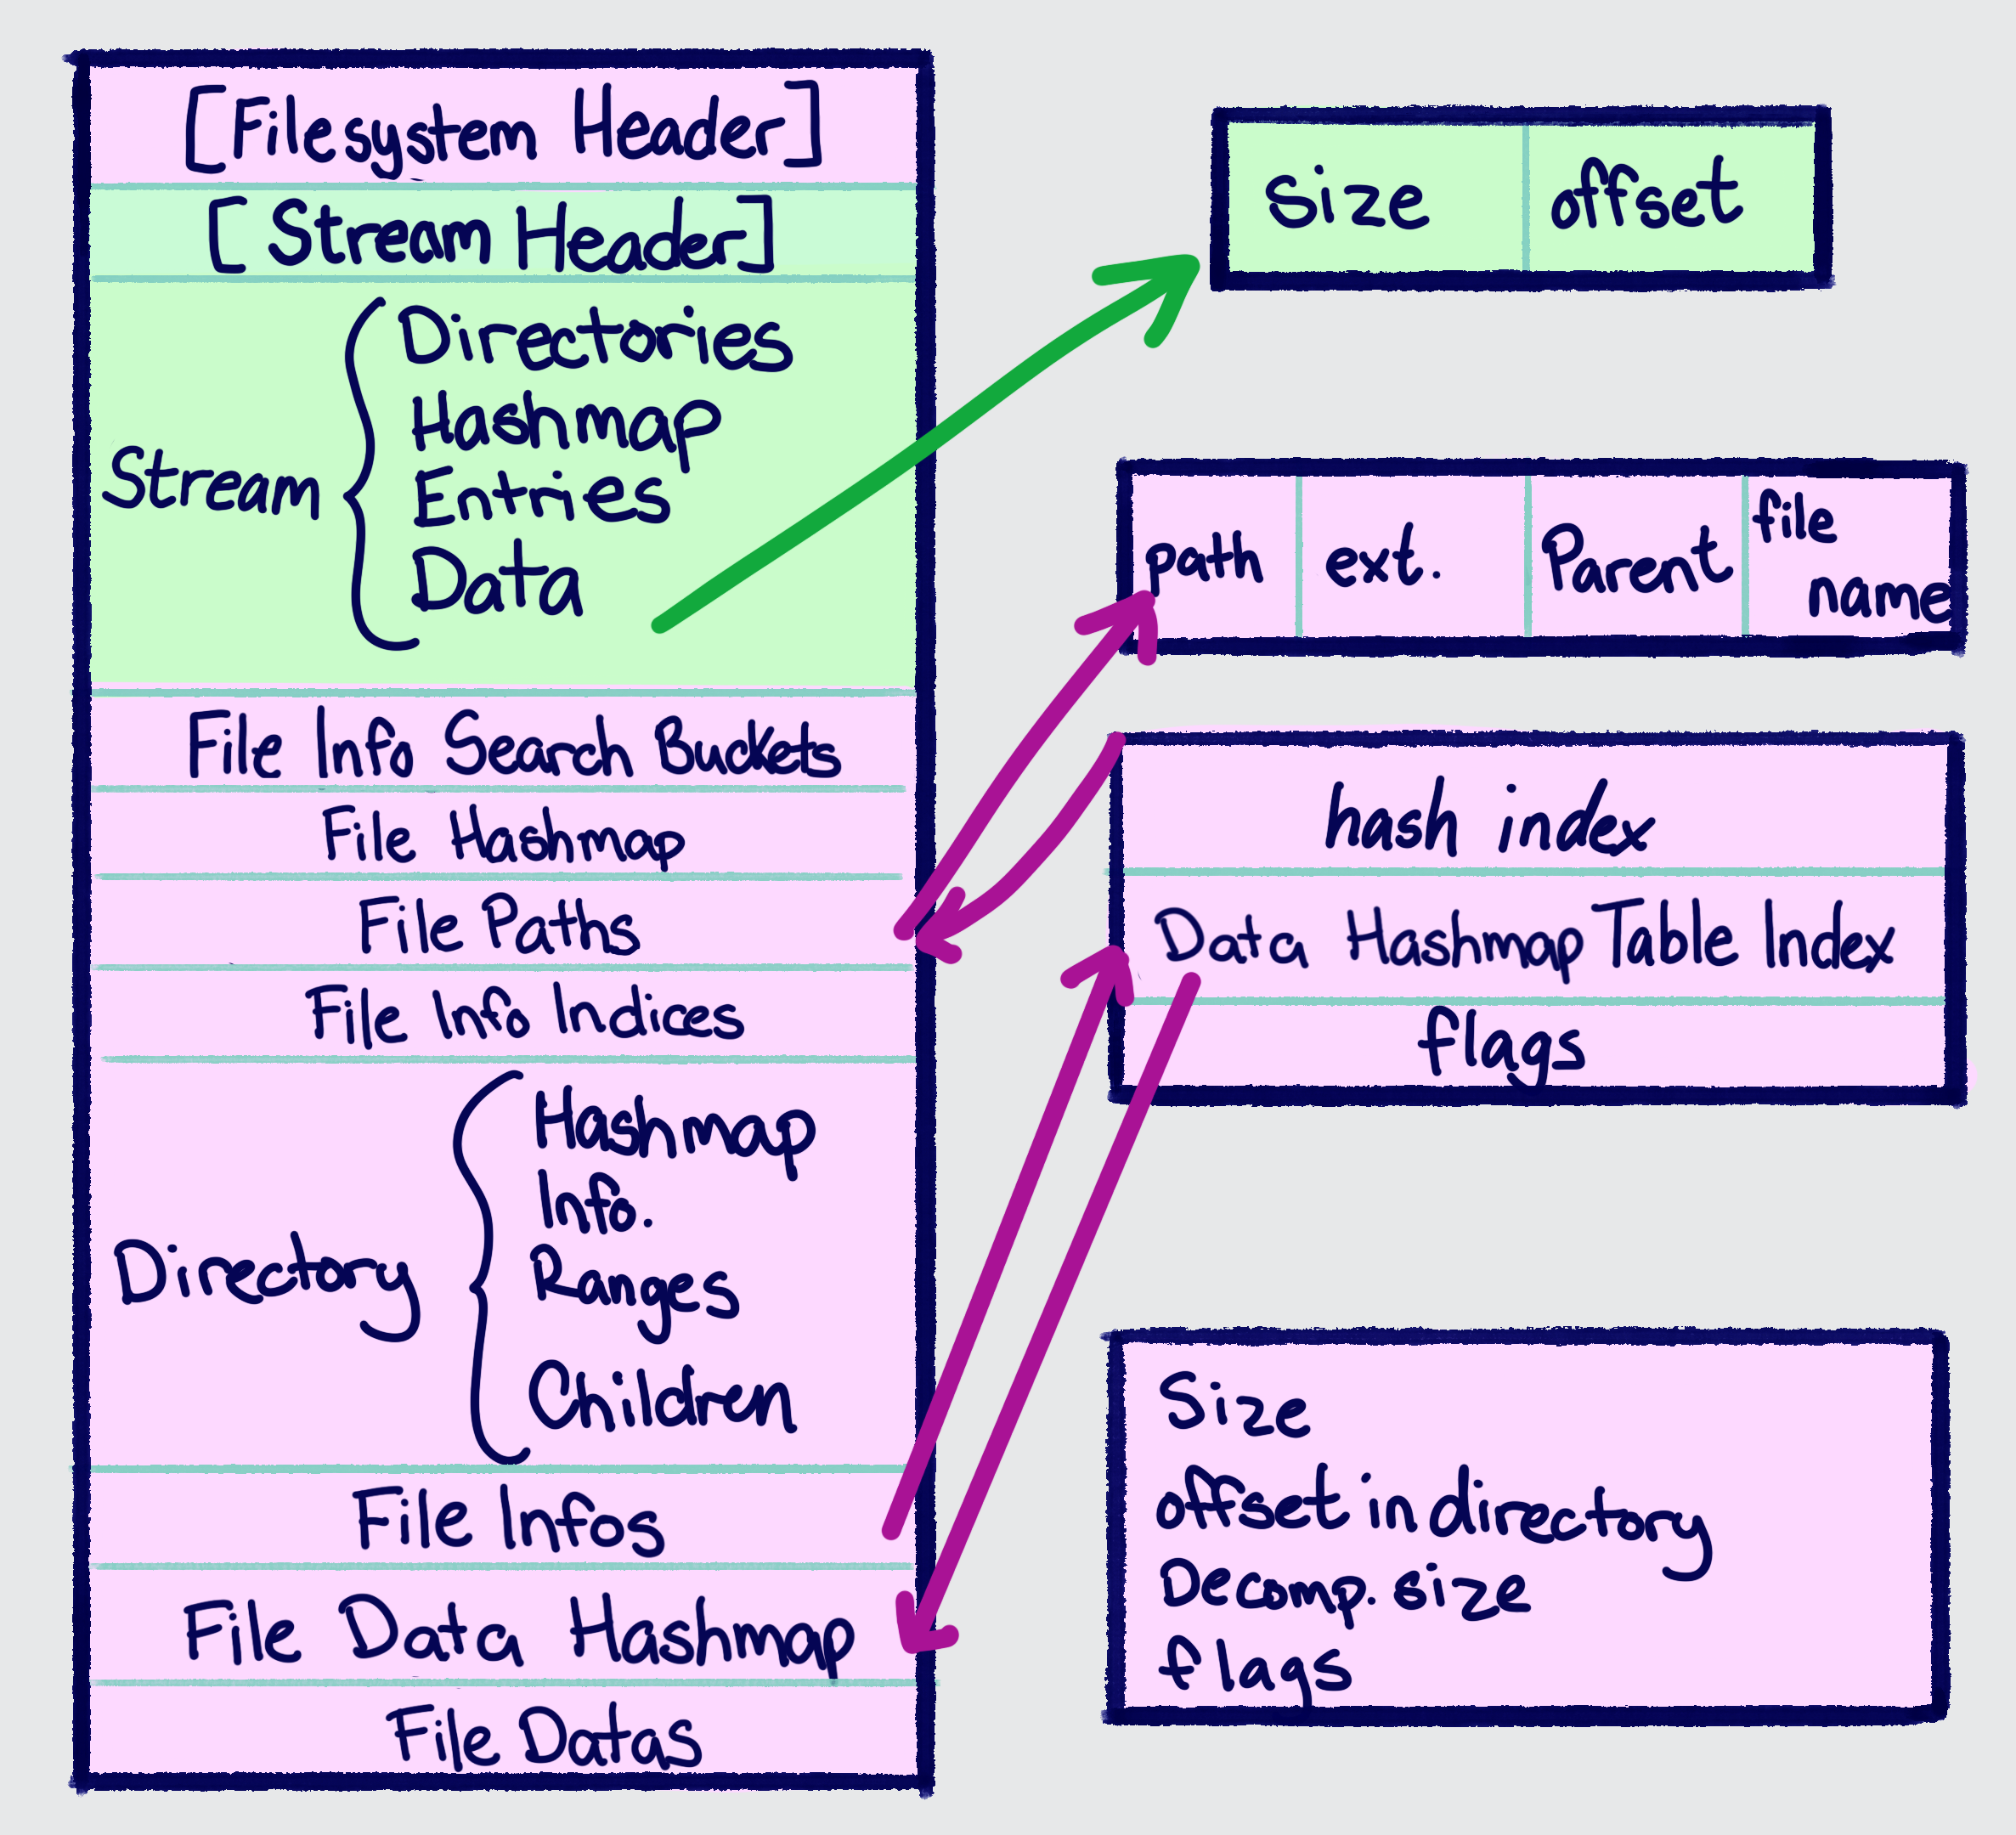 [Filesystem Header]
[Stream Header]
Stream
Directories
Hashmap
Entries
Data
File Info Search Buckets
File Hashmap
File Paths
File Info Indices
Directory
Hashmap
Info.
Ranges
Children
File Infos
File Data Hashmap
File Datas
Size
offset
path
ext.
Parent
file
name
hash index
Data Hashmap Table Index
flags
Size
offset in directory
Decomp. size
flags